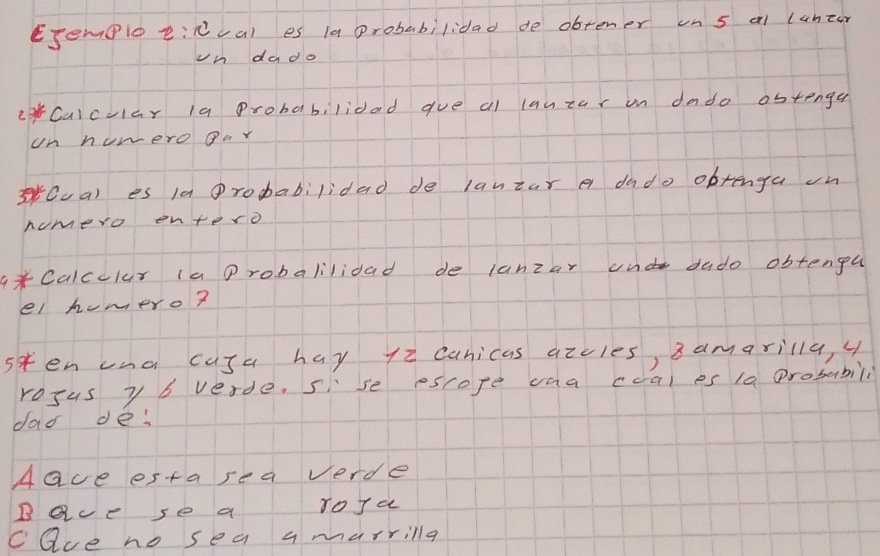 Ejemplo 1: Cual es la probabilidad de obtener un 5 al lanzar
un dado
2* Calcular la probabilidad que al lanzar un dado obtenga
un numero par
3* Cual es la probabilidad de lanzar a dado obtenga un
numero entero
4* Calcular la probalilidad de lanzar un dado obtenga
el numero 7
5* en una caja hay 12 canicas azules, 3 amarilla, 4
rojas y 6 verde. si se escoje una cual es la probabili
dad de:
A Que esta sea verde
B Que sea roja
C Que no sea amarrilla